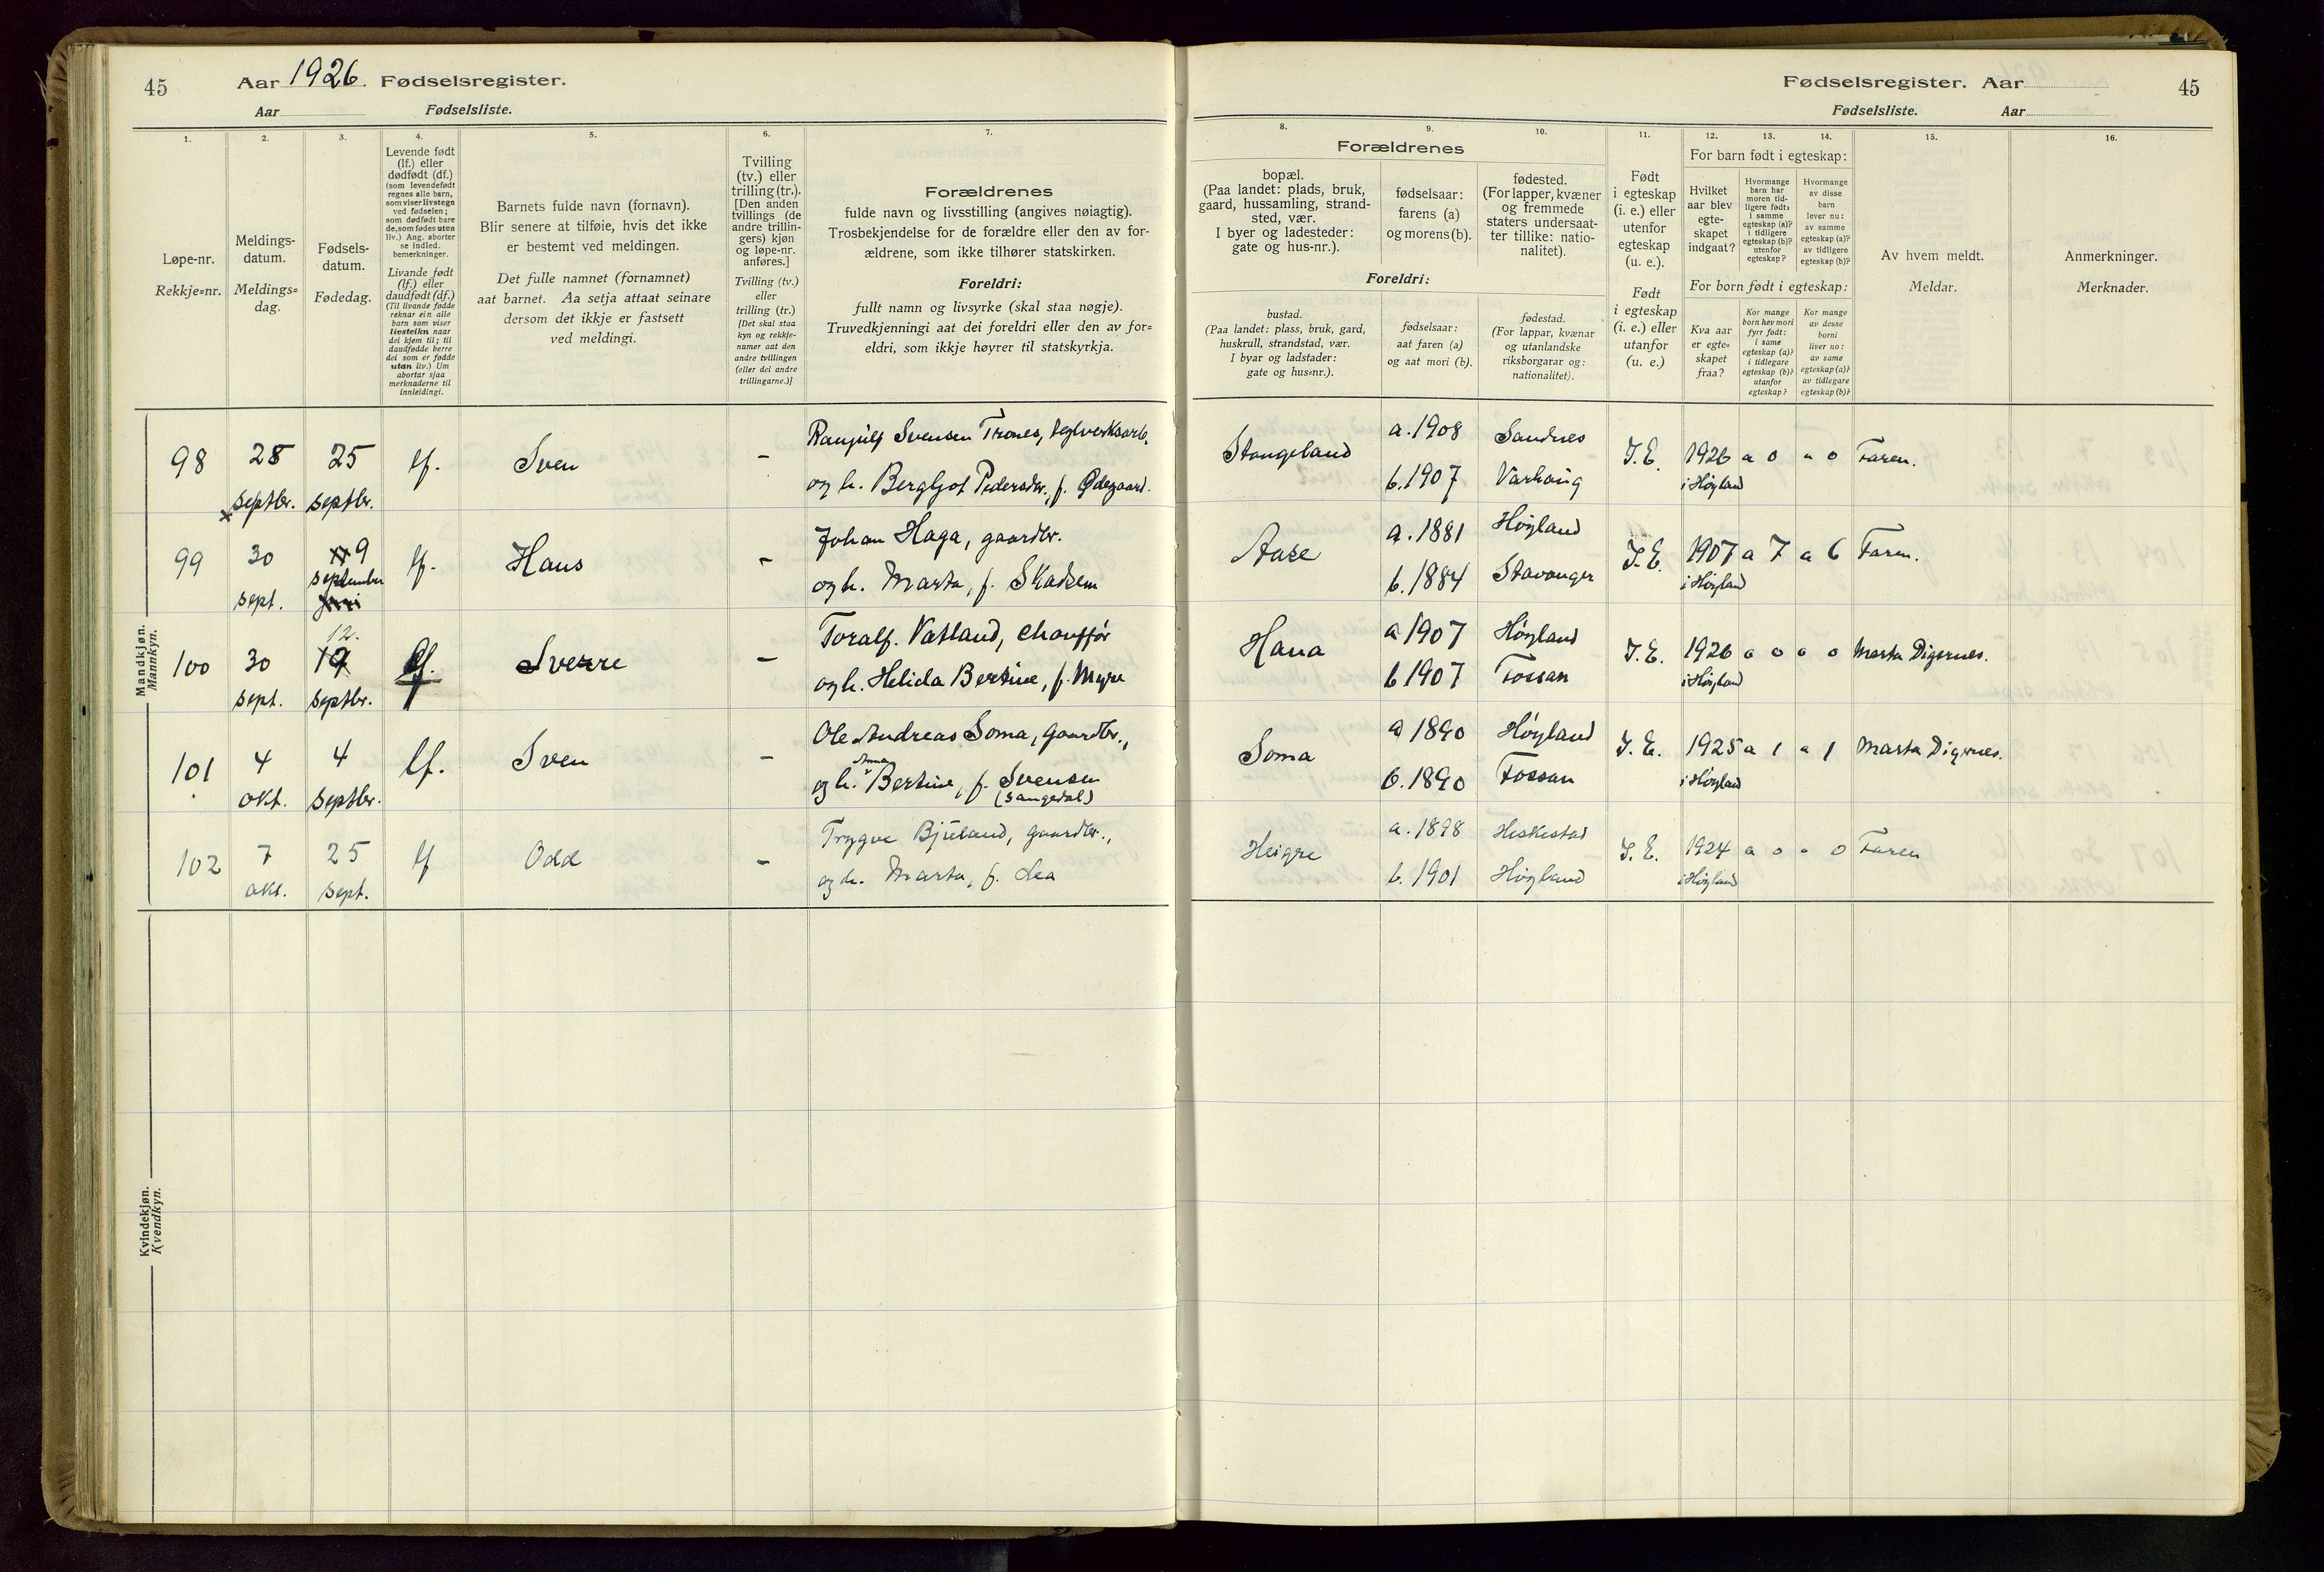 45
Aar 1926. Fødselsregister.
Aar Fødselsliste.
1. 2. 3. 4. 5. 6. 7.
Løpe-nr.
Rekkje=nr.
Meldings-
datum.
Meldings=
dag.
Fødsels-
datum.
Fødedag.
Levende født
(lf.) eller
dødfødt (df.)
(som levendefødt
regnes alle barn,
som viser livstegn
ved fødselen;
som dødfødt bare
de, som fødes uten
liv.) Ang. aborter
se indled.
bemerkninger.
Livande født
(lf.) eller
daudfødt (df.)
(Til livande fødde
reknar ein alle
barn som viser
livsteikn naar
dei kjem til; til
daudfødde berre
dei som er fødde
utan liv.) Um
abortar sjaa
merknaderne til
innleidingi.
Barnets fulde navn (fornavn).
Blir senere at tilføie, hvis det ikke
er bestemt ved meldingen.
Det fulle namnet (fornamnet)
aat barnet. Aa setja attaat seinare
dersom det ikkje er fastsett
ved meldingi.
Tvilling
(tv.) eller
trilling (tr.).
[Den anden
tvillings (de
andre trillin-
gers) kjøn
og løpe-nr.
anføres.]
Tvilling (tv.)
eller
trilling (tr.)
[Det skal staa
kyn og rekkje-
numer aat den
andre tvillingen
(eller dei andre
trillingarne.)]
Forældrenes
fulde navn og livsstilling (angives nøiagtig).
Trosbekjendelse for de forældre eller den av for-
ældrene, som ikke tilhører statskirken.
Foreldri:
fullt namn og livsyrke (skal staa nøgje).
Truvedkjenningi aat dei foreldri eller den av for=
eldri, som ikkje høyrer til statskyrkja.
Mandkjøn.
Mannkyn.
98 28 septbr. 25 septbr. lf. Sven - Svensen Trones, teglverksarb.
og h. Bergljot Pedersdtr., f. Ødegaard.
99 30 sept. 9 september lf. Hans - Johan Haga, gaardbr.
og h. Marta, f. Skadsem
100 30 sept. 12. septbr. lf. Sverre - Toralf. Vatland, chauffør
og h. Helida Bertine, f. Myre
101 4 okt. 4 septbr. lf. Sven - Ole Andreas Soma, gaardbr.,
og h. Anna Bertine, f. Svensen
(Sangedal)
102 7 okt. 25 sept. lf Odd - Trygve Bjuland, gaardbr.,
og h. Marta, f. Lea
Kvindekjøn.
Kvendkyn.
Fødselsregister. Aar
45
Fødselsliste. Aar
8. 9. 10. 11. 12. 13. 14. 15. 16.
Forældrenes
bopæl.
(Paa landet: plads, bruk,
gaard, hussamling, strand-
sted, vær.
I byer og ladesteder:
gate og hus-nr.).
fødselsaar:
farens (a)
og morens (b).
fødested.
(For lapper, kvæner
og fremmede
staters undersaat-
ter tillike: natio-
nalitet).
Foreldri:
bustad.
(Paa landet: plass, bruk, gard,
huskrull, strandstad, vær.
I byar og ladstader:
gate og hus=nr.).
fødselsaar:
aat faren (a)
og aat mori (b).
fødestad.
(For lappar, kvænar
og utanlandske
riksborgarar og:
nationalitet).
Født
i egteskap
(i. e.) eller
utenfor
egteskap
(u. e.).
Født
i egteskap
(i. e.) eller
utanfor
(u. e.)
For barn født i egteskap:
Hvilket
aar blev
egte-
skapet
indgaat?
Hvormange
barn har
moren tid-
ligere født:
i samme
egteskap (a)?
i tidligere
egteskap (b)?
utenfor
egteskap?
Hvormange
av disse
barn
lever nu:
av samme
egteskap (a)?
av tidligere
egteskap (b)?
For born født i egteskap:
Kva aar
er egte=
skapet
fraa?
Kor mange
born hev mori
fyrr født:
i same
egteskap (a)?
i tidlegare
egteskap (b)?
utanfor
egteskap?
Kor mange
av desse
borni
liver no:
av same
egteskap (a)?
av tidlegare
egteskap (b)?
Av hvem meldt.
Meldar.
Anmerkninger.
Merknader.
Stangeland a. 1908 Sandnes I. E. 1926 a 0 a 0 Faren.
b. 1907 Varhaug i Høyland
Aase a. 1881 Høyland I. E. 1907 a 7 a 6 Faren.
b. 1884 Stavanger i Høyland
Hana a 1907 Høyland I. E. 1926 a 0 a 0 Marta Digernes.
b 1907 Fossan i Høyland
Soma a 1890 Høyland I. E. 1925 a 1 a 1 Marta Digernes.
b. 1890 Fossan i Høyland
Heigre a. 1898 Heskestad I. E. 1924 a 0 a 0 Faren
b. 1901 Høyland i Høyland